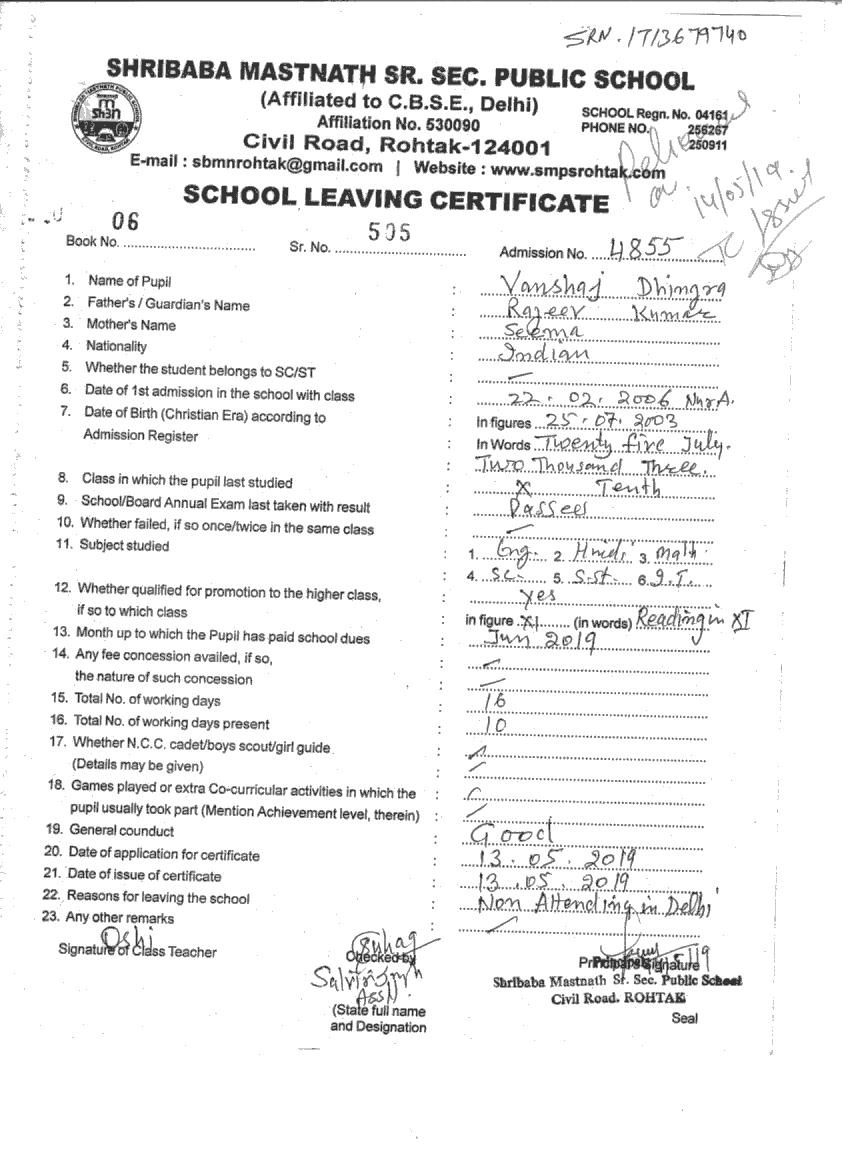 SRN. 1713679740
SHRIBABA MASTNATH SR. SEC. PUBLIC SCHOOL
(Affiliated to C.B.S.E., Delhi)
Affiliation No. 530090
SCHOOL Regn. No. 04161
PHONE NO. 256267
250911
Civil Road, Rohtak-124001
E-mail : sbmnrohtak@gmail.com | Website : www.smpsrohtak.com
on 14/05/19.
TC Issued
SCHOOL LEAVING CERTIFICATE
Book No. 06 Sr. No. 505 Admission No. 4855
1. Name of Pupil : Vanshaj Dhingra
2. Father's / Guardian's Name : Rajeev Kumar
3. Mother's Name : Seema
4. Nationality : Indian
5. Whether the student belongs to SC/ST : —
6. Date of 1st admission in the school with class : 22. 02. 2006 NurA.
7. Date of Birth (Christian Era) according to : In figures 25. 07. 2003
Admission Register : In Words Twenty five July.
Two Thousand Three.
8. Class in which the pupil last studied : X Tenth
9. School/Board Annual Exam last taken with result : Passed
10. Whether failed, if so once/twice in the same class : —
11. Subject studied : 1. Eng. 2. Hindi 3. Math
4. SC. 5. S.St. 6. I.T.
12. Whether qualified for promotion to the higher class, : yes
if so to which class in figure XI (in words) Reading in XI
13. Month up to which the Pupil has paid school dues : Jun 2019
14. Any fee concession availed, if so, : —
the nature of such concession : —
15. Total No. of working days : 16
16. Total No. of working days present : 10
17. Whether N.C.C. cadet/boys scout/girl guide
(Details may be given) : —
18. Games played or extra Co-curricular activities in which the :
pupil usually took part (Mention Achievement level, therein) : —
19. General counduct : Good
20. Date of application for certificate : 13. 05. 2019
21. Date of issue of certificate : 13. 05. 2019
22. Reasons for leaving the school : Non Attending in Delhi
23. Any other remarks : —
Signature of Class Teacher
Checked by
(State full name
and Designation
Principal's Signature
Shribaba Mastnath Sr. Sec. Public School
Civil Road. ROHTAK
Seal